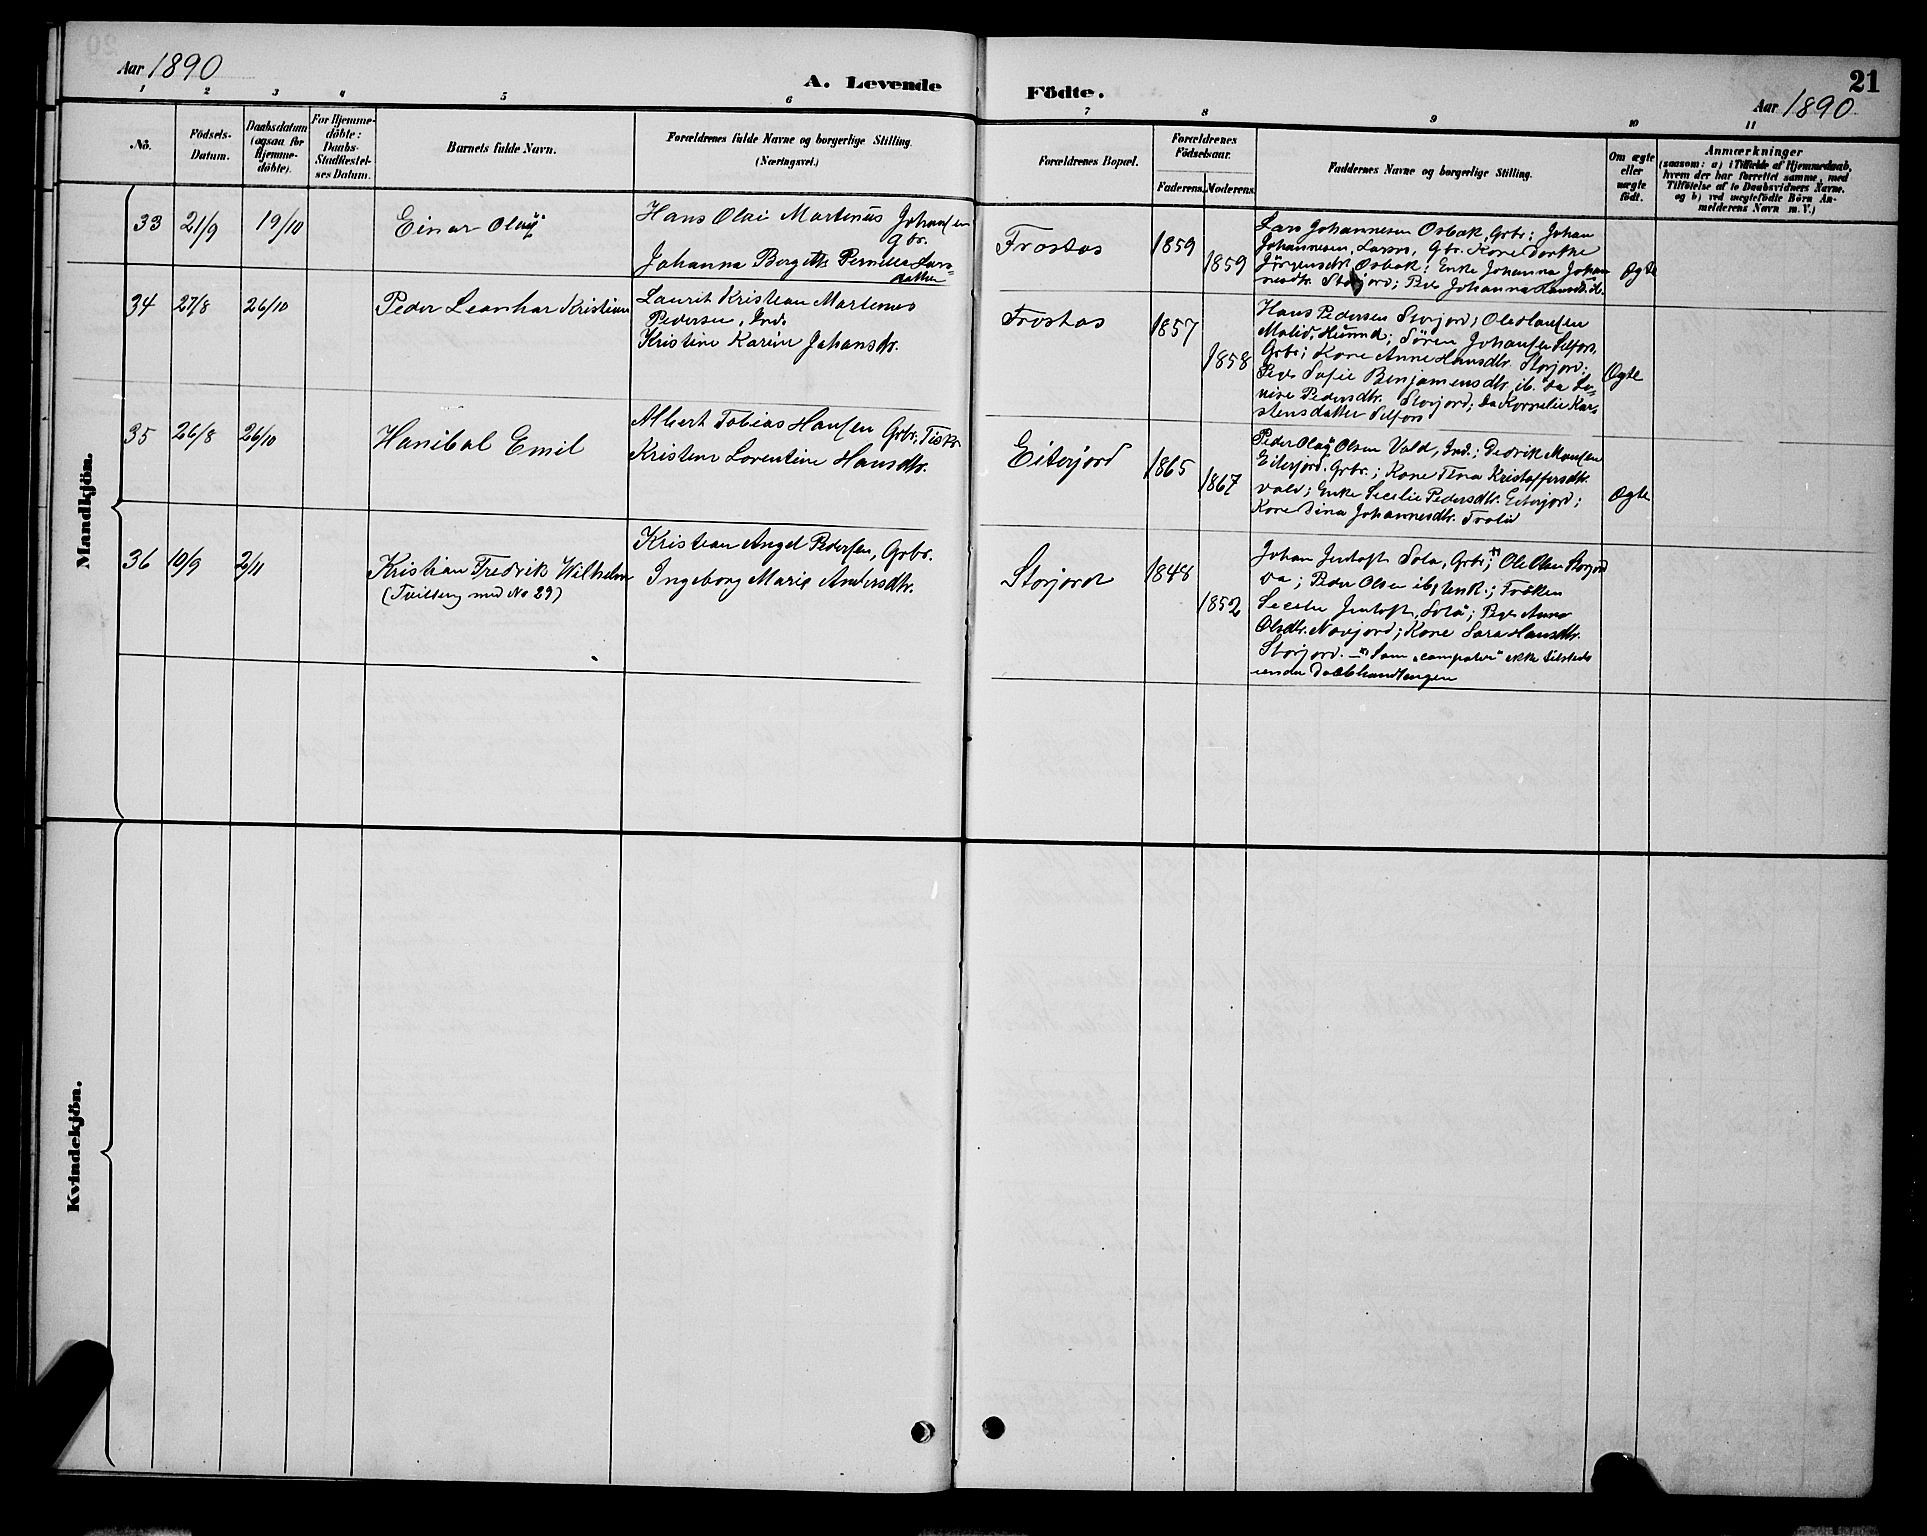 Aar 1890
A. Levende
Födte.
21
Aar 1890.
1 2 3 4 5 6 7 8 9 10 11
No.
Födsels-
Datum.
Daabsdatum
(ogsaa for
Hjemme-
döbte).
For Hjemme-
döbte:
Daabs-
Stadfæstel-
ses Datum.
Barnets fulde Navn.
Forældrenes fulde Navne og borgerlige Stilling.
(Næringsvei.)
Forældrenes Bopæl.
Forældrenes
Födselsaar.
Faderens. Moderens.
Faddernes Navne og borgerlige Stilling.
Om ægte
eller
uægte
født.
Anmærkninger
(saasom: a) i Tilfælde af Hjemmedaab,
hvem der har forrettet samme, med
Tilføielse af to Daabsvidners Navne.
og b) ved uægtefödte Börn An-
melderens Navn m. V.)
Mandkjön.
33 21/9 19/10
Einar Olaij
Hans Olai Martinus Johansen
Gbr.
Johanna Bergitte Pernille Lars-
datter
Frostas
1859
1859
Lars Johannesen Osbak, Grbr; Johan
Johannesen, , Gbr. Kone Dorthe
Jörgensdtr. Osbak; Enke Johanna Johan
nesdtr. Storjord; Pige Johanna Hansd. ib.
Ægte
34 27/8 26/10
Peder Leonhar Kristian
Laurit Kristian Martinus
Pedersen, Ind.
Kristine Karine Johansdr.
Frostas
1857
1858
Hans Pedersen Storjord; Ole Hansen
; Sören Johansen Selfors,
Grbr; Kone Anne Hansdtr. Storjord;
Pige Sofie Benjamensdtr. ib. Da
Pedersdtr. Storjord; Da Kornelie Kar-
stensdatter Selfors
Ægte
35 26/8 26/10
Hanibal Emil
Albert Tobias Hansen Grbr. Fisk
Kristine Lorentine Hansdtr.
Eiterjord
1865
1867
Peder Olaij Olsen Vald, Ind.; Didrik
Eiterjord. Grbr.; Kone Tina Kristoffersdtr.
vald; Enke Secelie Pedersdtr. Eiterjord;
Kone Dina Johannesdtr. Trolid
Ægte
36 10/9 2/11
Kristian Fredrik Wilhelm
(Tvilling med No 29)
Kristian Angel Pedersen, Grbr.
Ingeborg Marie Andersdtr.
Storjord
1848
1852
Johan Jentoft Sola, Grbr; Ole Olsen Storjord
; Peder Olsen ib, Unk.; Fröken
Secelie Jentoft, Sola; Pige Anna
Olsdtr. Novjord; Kone Sara Hansdtr.
Storjord. — Som "compater" ikke tilstede
under Daabshandlingen
Kvindekjön.